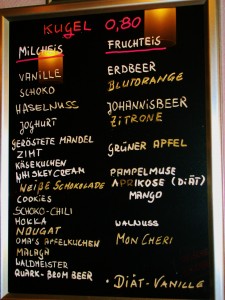 KUGEL 0,80
MILCHEIS
VANILLE
SCHOKO
HASELNUSS
JOGHURT
GERÖSTETE MANDEL
ZIMT
KÄSEKUCHEN
WHISKEYCREAM
WEIßE SCHOKOLADE
COOKIES
SCHOKO-CHILI
MOKKA
NOUGAT
OMA'S APFELKUCHEN
MALAGA
WALDMEISTER
QUARK-BROMBEER
FRUCHTEIS
ERDBEER
BLUTORANGE
JOHANNISBEER
ZITRONE
GRÜNER APFEL
PAMPELMUSE
APRIKOSE (DIÄT)
MANGO
WALNUSS
MON CHERI
• DIÄT-VANILLE